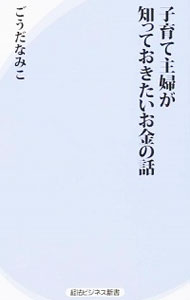 子育て主婦が
知っておきたいお金の話
ごうだなみこ
経法ビジネス新書